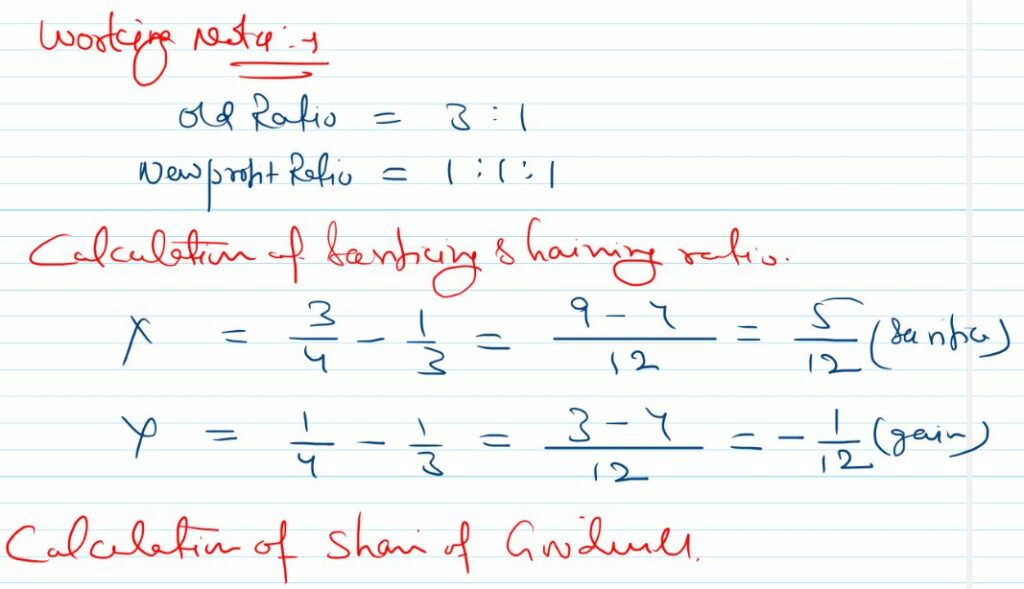 Working Note :-
Old Ratio = 3 : 1
New profit Ratio = 1 : 1 : 1
Calculation of Sacrificing & haining ratio.
X = 3/4 - 1/3 = 9 - 4/12 = 5/12 (Sacrifice)
Y = 1/4 - 1/3 = 3 - 4/12 = - 1/12 (gain)
Calculation of Share of Goodwill.